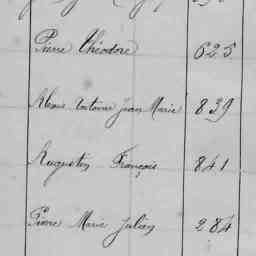 Pierre Théodore 625
Alexis Antoine Jean Marie 839
Augustin François 841
Pierre Marie Julien 284